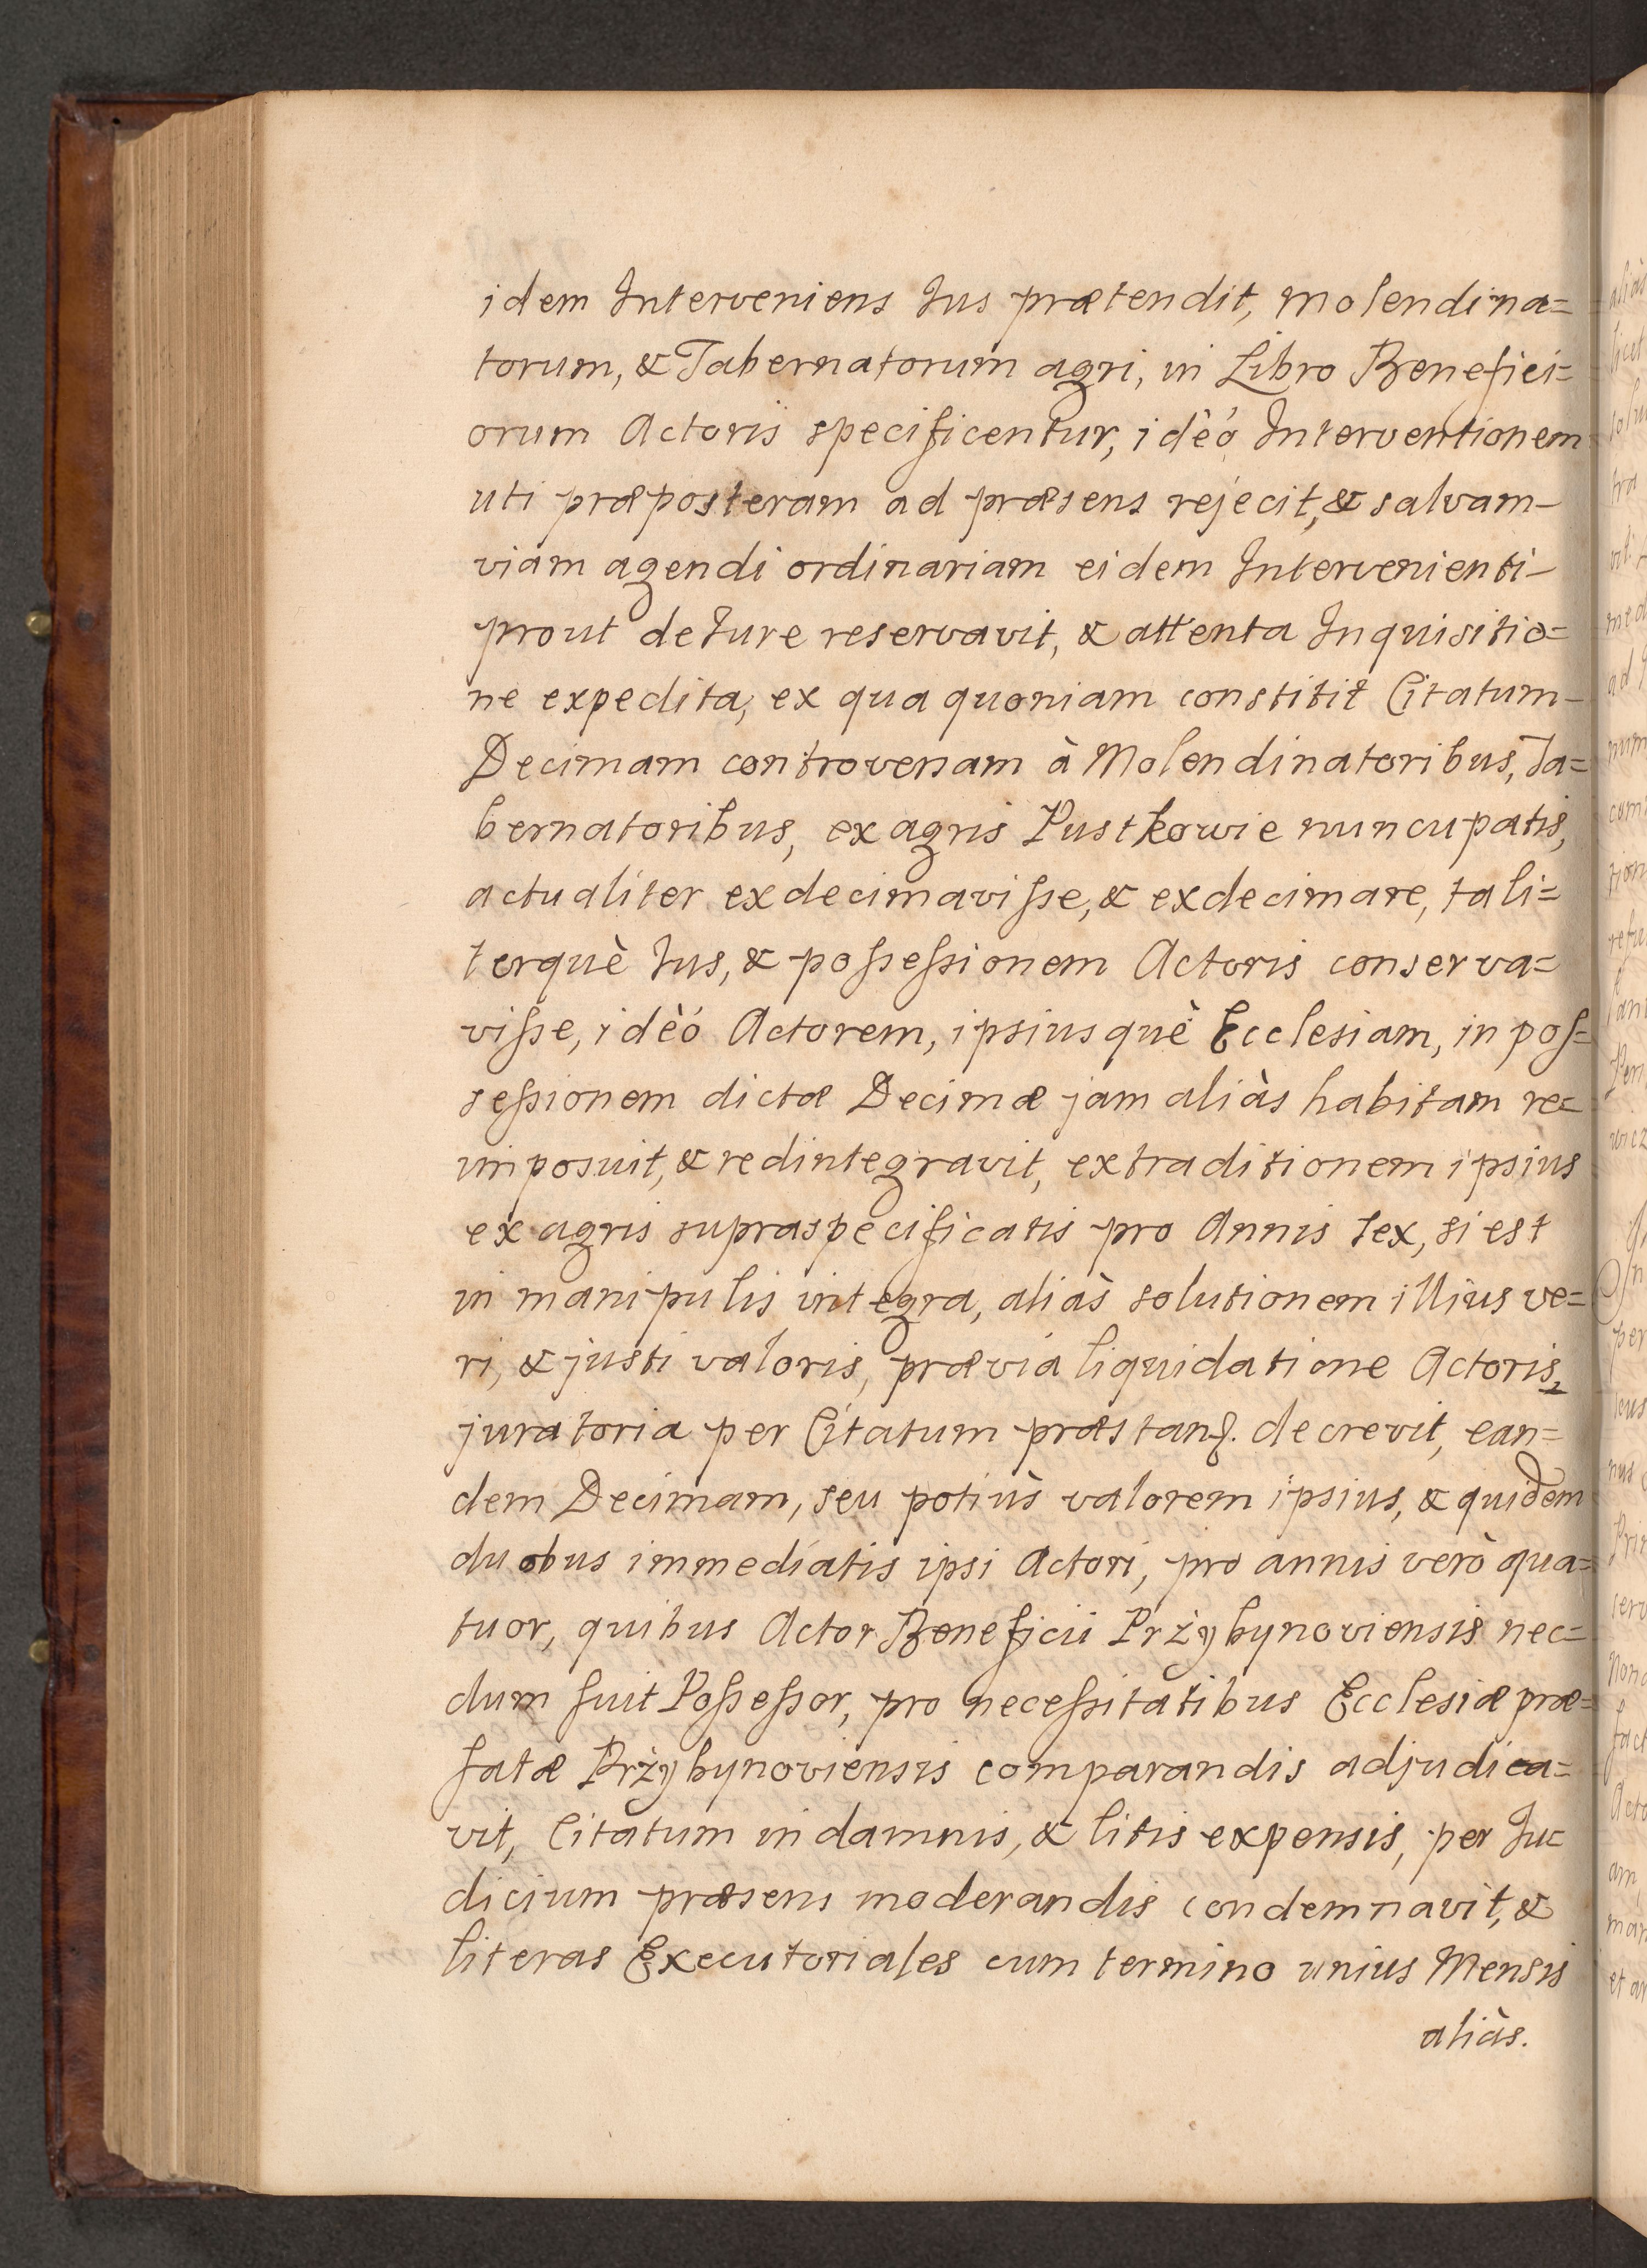 idem Interveniens Jus prætendit, molendina=
torum, & Tabernatorum agri, in Libro Benefici=
orum Actoris specificentur, idèó Interventionem
uti præposteram ad præsens rejecit, & salvam-
viam agendi ordinariam eidem Intervenienti-
prout de Jure reservavit, & attenta Inquisitio=
ne expedita, ex qua quoniam constitit Citatum-
Decimam controversam à Molendinatoribus, Ta=
bernatoribus, ex agris Pustkowie nuncupatis,
actualiter exdecimavisse, & exdecimare, tali=
terquè Jus, & possessionem Actoris conserva=
visse, idèó Actorem, ipsiusquè Ecclesiam, in pos=
sessionem dictæ Decimæ jam aliàs habitam re=
imposuit, & redintegravit, extraditionem ipsius
ex agris supraspecificatis pro Annis sex, si est
in manipulis integra, aliàs solutionem illius ve=
ri, & justi valoris, prævia liquidatione Actoris,
juratoria per Citatum decrevit, ean=
dem Decimam, seu potiùs valorem ipsius, & quidem
duobus immediatis ipsi Actori, pro annis verò qua=
tuor, quibus Actor Beneficii Prżybynoviensis nec=
dum fuit Possessor, pro necessitatibus Ecclesiæ præ=
fatæ Prżybynoviensis comparandis adjudica=
vit, Citatum in damnis, & litis expensis, per Ju=
dicium præsens moderandis condemnavit, &
literas Executoriales cum termino unius Mensis
aliàs.